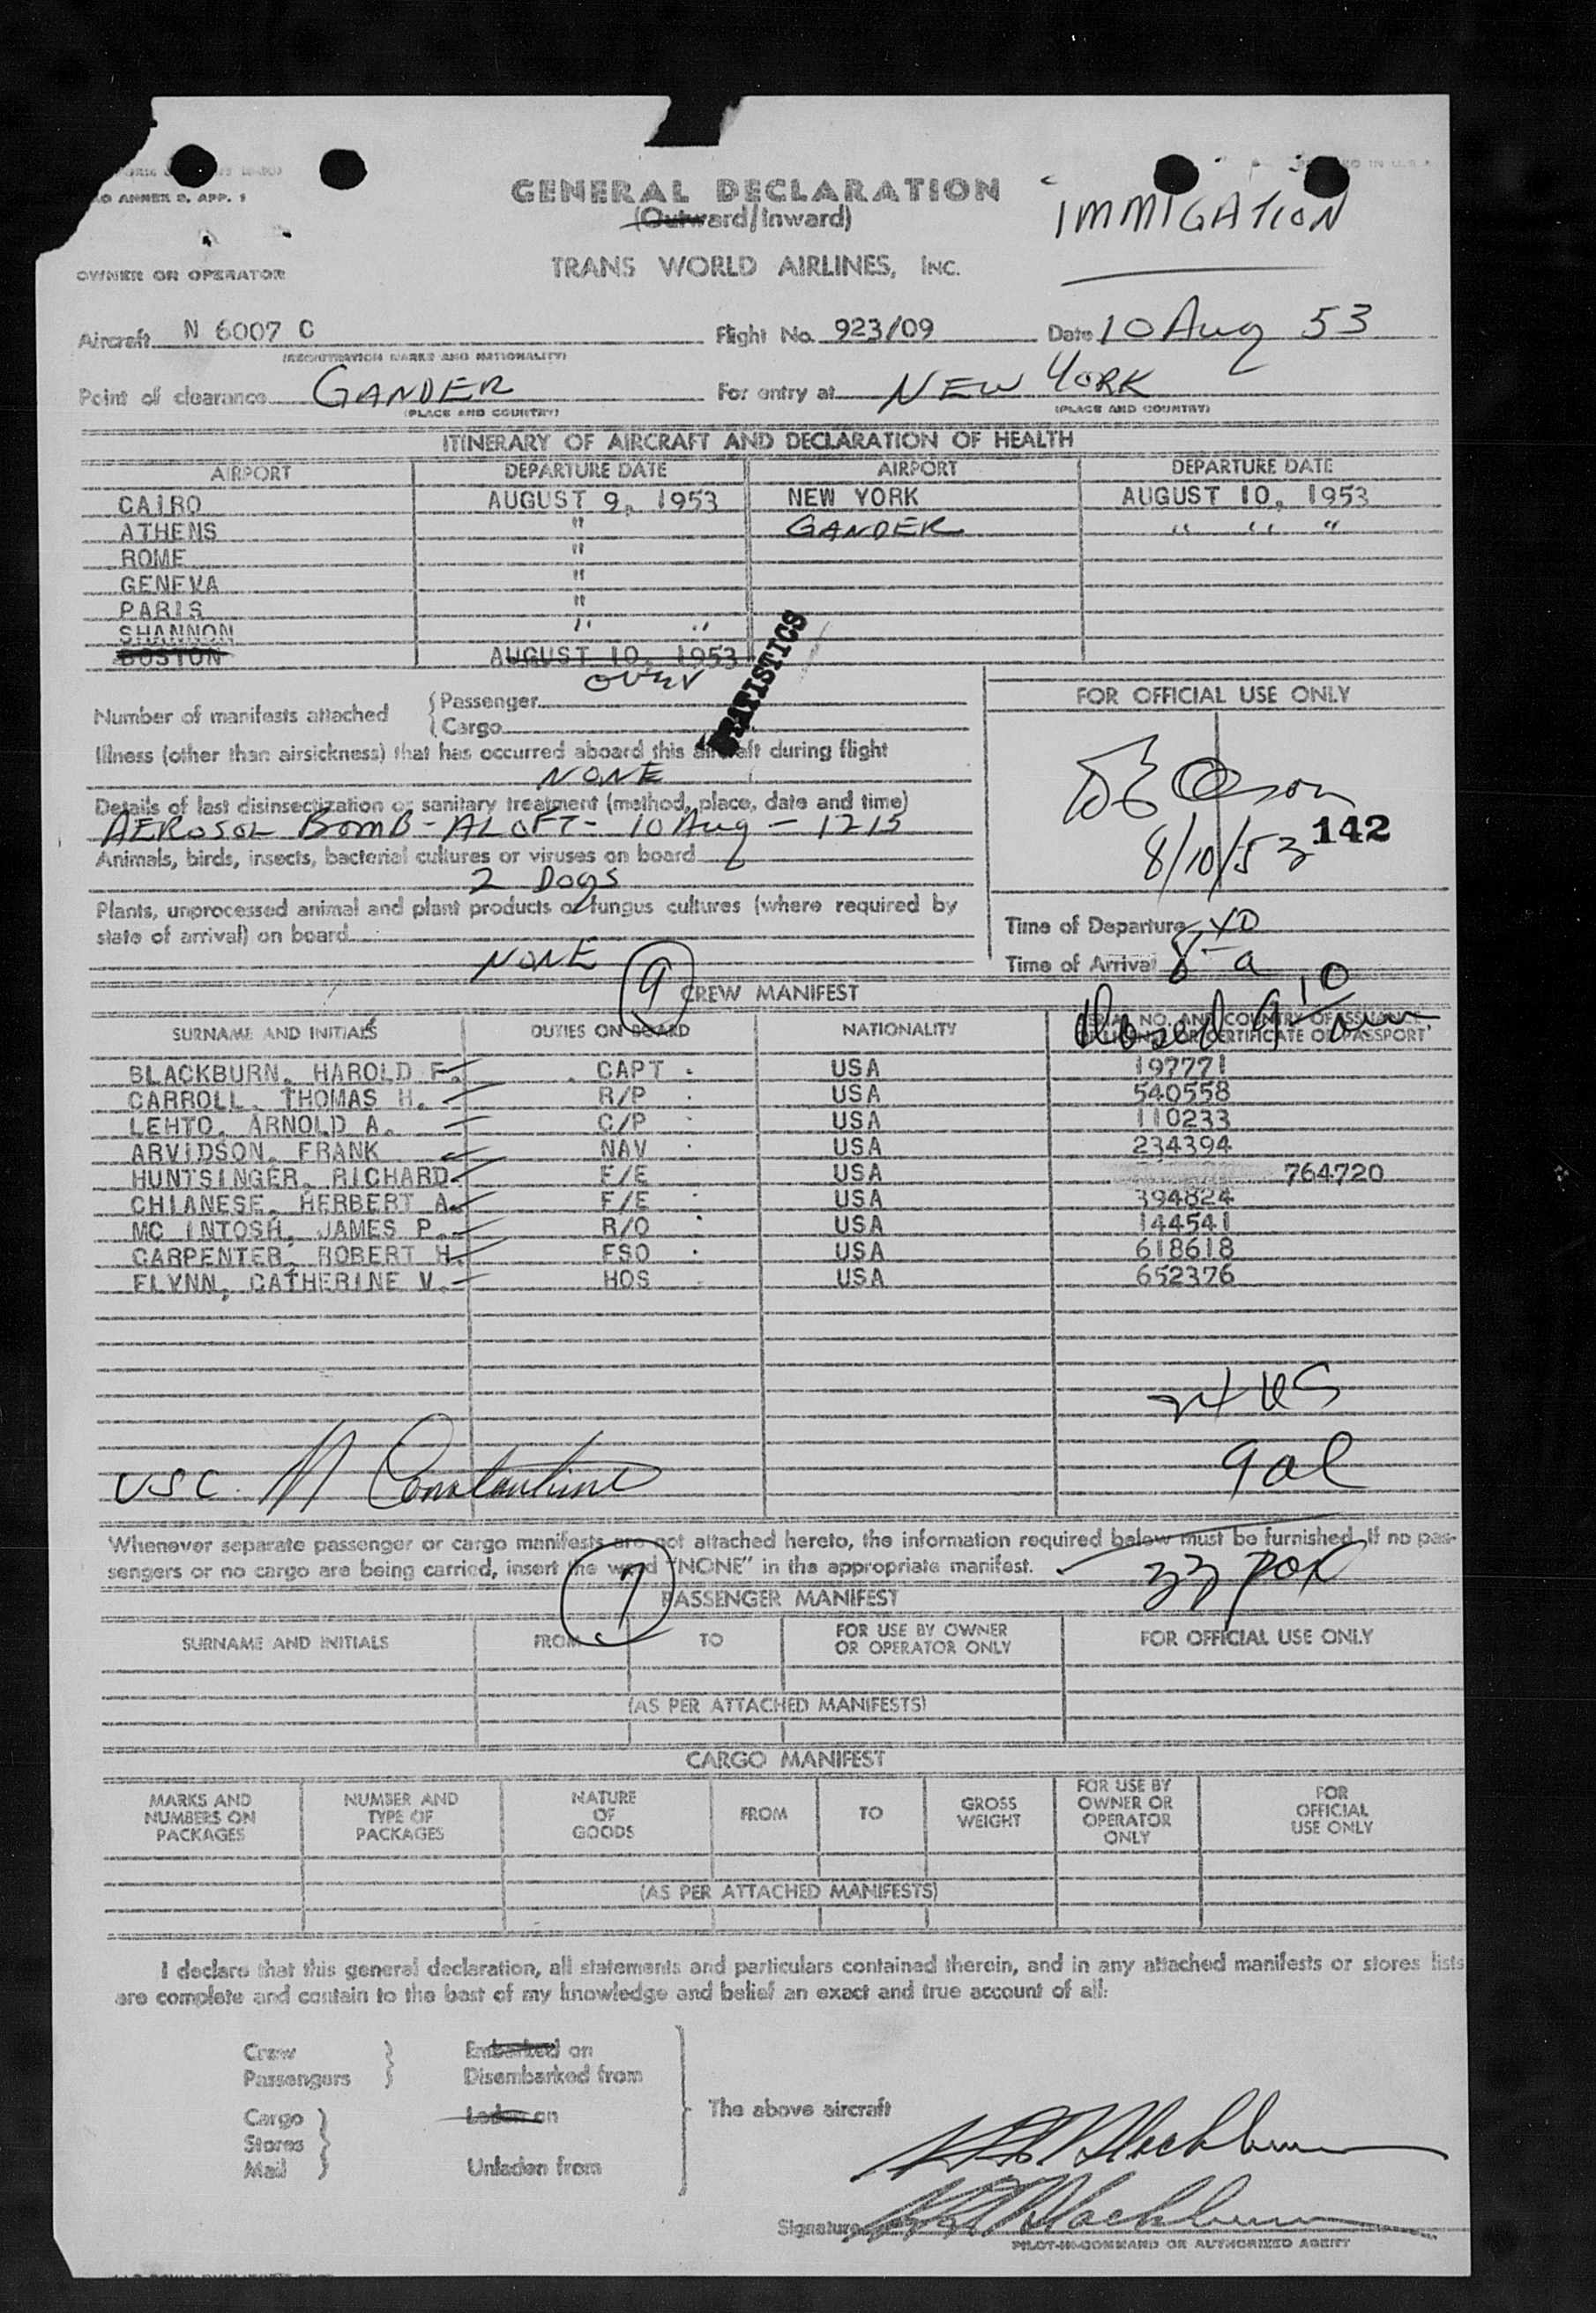 ANNEX 9. APP. 1
GENERAL DECLARATION
(Outward/Inward)
IMMIGATION
OWNER OR OPERATOR
TRANS WORLD AIRLINES, INC.
Aircraft N 6007 C Flight No. 923/09 Date 10 Aug 53
(REGISTRATION MARKS AND NATIONALITY)
Point of clearance GANDER For entry at NEW YORK
(PLACE AND COUNTRY) (PLACE AND COUNTRY)
ITINERARY OF AIRCRAFT AND DECLARATION OF HEALTH
AIRPORT DEPARTURE DATE AIRPORT DEPARTURE DATE
CAIRO AUGUST 9, 1953 NEW YORK AUGUST 10, 1953
ATHENS " GANDER " " "
ROME "
GENEVA "
PARIS "
SHANNON " "
BOSTON AUGUST 10, 1953
STATISTICS
Number of manifests attached { Passenger
{ Cargo
FOR OFFICIAL USE ONLY
Illness (other than airsickness) that has occurred aboard this aircraft during flight
NONE
Details of last disinsectization or sanitary treatment (method, place, date and time)
AEROSOL BOMB - ALOFT - 10 Aug - 1215
8/10/53 142
Animals, birds, insects, bacterial cultures or viruses on board
2 Dogs
Plants, unprocessed animal and plant products or fungus cultures (where required by
state of arrival) on board
NONE
Time of Departure
Time of Arrival
9
CREW MANIFEST
SURNAME AND INITIALS DUTIES ON BOARD NATIONALITY SERIAL NO. AND COUNTRY OF ISSUANCE
OR CERTIFICATE OR PASSPORT
BLACKBURN, HAROLD F. CAPT USA 197771
CARROLL, THOMAS H. R/P USA 540558
LEHTO, ARNOLD A. C/P USA 110233
ARVIDSON, FRANK NAV USA 234394
HUNTSINGER, RICHARD F/E USA 764720
CHIANESE, HERBERT A. F/E USA 394824
MC INTOSH, JAMES P. R/O USA 144541
CARPENTER, ROBERT H. FSO USA 618618
FLYNN, CATHERINE V. HOS USA 652376
24 US
9 al
USC M Constantine
Whenever separate passenger or cargo manifests are not attached hereto, the information required below must be furnished. If no pas-
sengers or no cargo are being carried, insert the word "NONE" in the appropriate manifest.
33 pax
7
PASSENGER MANIFEST
SURNAME AND INITIALS FROM TO FOR USE BY OWNER OR OPERATOR ONLY FOR OFFICIAL USE ONLY
(AS PER ATTACHED MANIFESTS)
CARGO MANIFEST
MARKS AND NUMBERS ON PACKAGES NUMBER AND TYPE OF PACKAGES NATURE OF GOODS FROM TO GROSS WEIGHT FOR USE BY OWNER OR OPERATOR ONLY FOR OFFICIAL USE ONLY
(AS PER ATTACHED MANIFESTS)
I declare that this general declaration, all statements and particulars contained therein, and in any attached manifests or stores lists
are complete and contain to the best of my knowledge and belief an exact and true account of all:
Crew Embarked on
Passengers Disembarked from
The above aircraft
Cargo Laden on
Stores
Mail Unladen from
H F Blackburn
Signature H F Blackburn
PILOT-IN-COMMAND OR AUTHORIZED AGENT